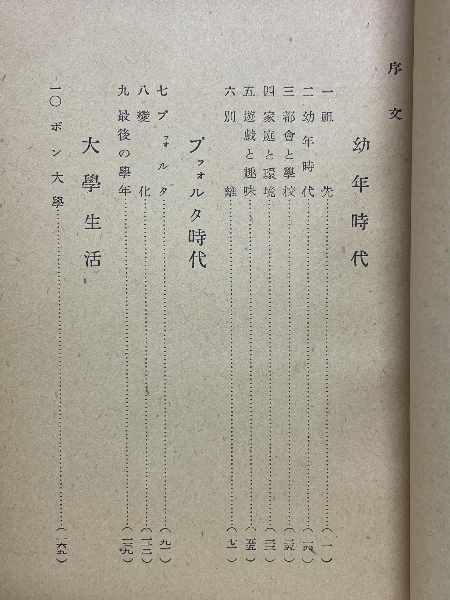 序文
幼年時代
一 祖先……(一)
二 幼年時代……(一四)
三 都會と學校……(二五)
四 家庭と環境……(三三)
五 遊戲と趣味……(五五)
六 別離……(七一)
プフォルタ時代
七 プフォルタ……(九一)
八 變化……(一一二)
九 最後の學年……(一三九)
大學生活
一〇 ボン大學……(一六九)